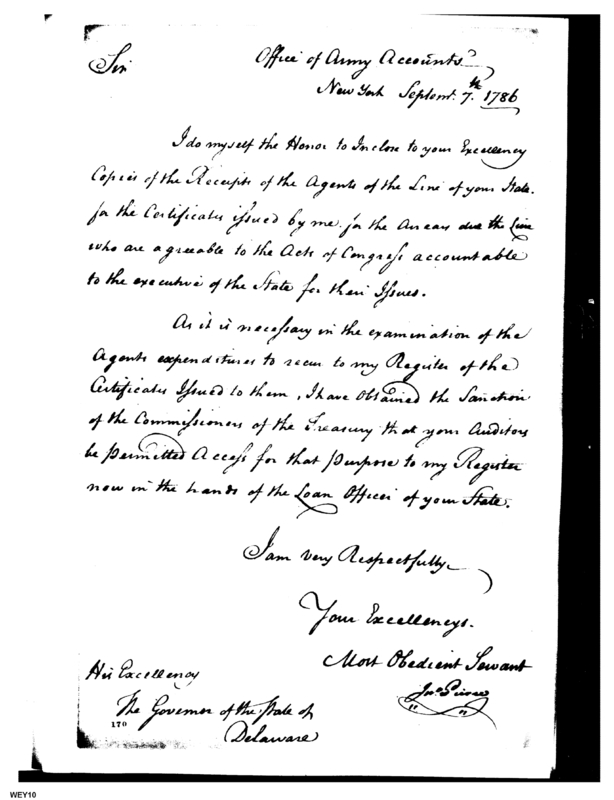 Sir
Office of Army Accounts
New York Septemr. 7th. 1786
I do myself the Honor to Inclose to your Excellency
Copies of the Receipts of the Agents of the Line of your State.
for the Certificates issued by me for the Arrears due the Line
who are agreeable to the Acts of Congress accountable
to the executive of the State for their Issues.
As it is necessary in the examination of the
Agents expenditures to recur to my Register of the
Certificates Issued to them, I have obtained the Sanction
of the Commissioners of the Treasury that your Auditors
be permitted Access for that purpose to my Register
now in the hands of the Loan Officer of your State.
I am very Respectfully
Your Excellencys.
Most Obedient Servant
Jno. Pierce
His Excellency
The Governor of the State of
Delaware
170
WEY10